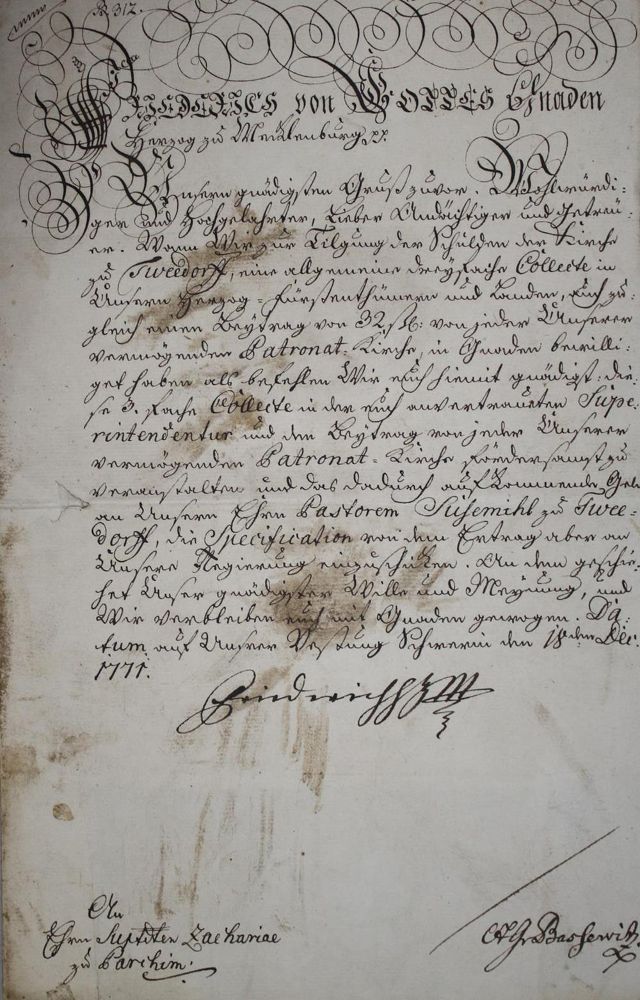 N. 312.
FRIEDERICH von GOTTES Gnaden
Herzog zu Mecklenburg pp.
Unsern gnädigsten Gruß zuvor. Wohlwürdi-
ger und Hochgelahrter, Lieber Andächtiger und Getreü-
er. Wann Wir zur Tilgung der Schulden der Kirche
zu Tweedorff, eine allgemeine dreyfache Collecte in
Unsern Herzog- Fürstenthümern und Landen, auch zu-
gleich einen Beytrag von 32 ßl: von jeder Unserer
vermögenden Patronat-Kirche, in Gnaden bewilli-
get haben als befehlen Wir euch hiemit gnädigst: die-
se 3. fache Collecte in der euch anvertraueten Supe-
rintendentur und den Beytrag von jeder Unserer
vermögenden Patronat-Kirche fordersamst zu
veranstalten und das dadurch aufkommende Geld
an Unsern Ehrn Pastorem Susemihl zu Twee-
dorff, die Specification von dem Ertrag aber an
Unsere Regierung einzuschicken. An dem geschie-
het Unser gnädigster Wille und Meynung, und
Wir verbleiben euch mit Gnaden gewogen. Da-
tum auf Unsrer Vestung Schwerin den 18ten Dec.
1771.
Friedrich HZM
An
Ehrn Suptdten Zachariae
zu Parchim.
CFGvBassewitz